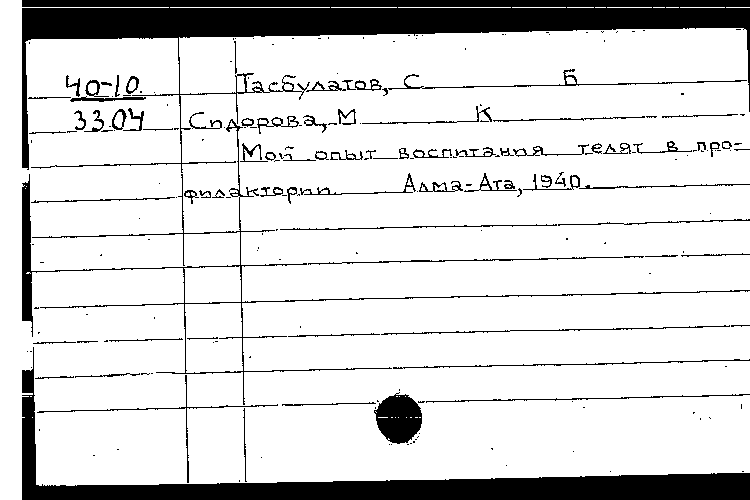 40-10 Тасбулатов, С Б
3304 Сидорова, М К
Мой опыт воспитания телят в про-
филактории Алма-Ата, 1940.